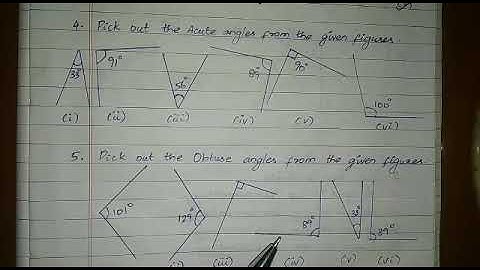 4. Pick out the Acute angles from the given figures.
33° 91° 56° 89° 90° 100°
(i) (ii) (iii) (iv) (v) (vi)
5. Pick out the Obtuse angles from the given figures
101° 129° 33° 89°
(iii) (iv) (v) (vi)